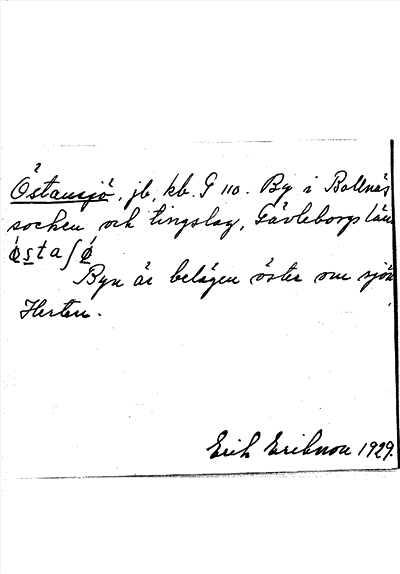 Östansjö, jb, kb. G 110. By i Bollnäs
socken och tingslag, Gävleborgs län
ǿstaʃǿ
Byn är belägen öster om sjön
Herten.
Erik Eriksson 1929.